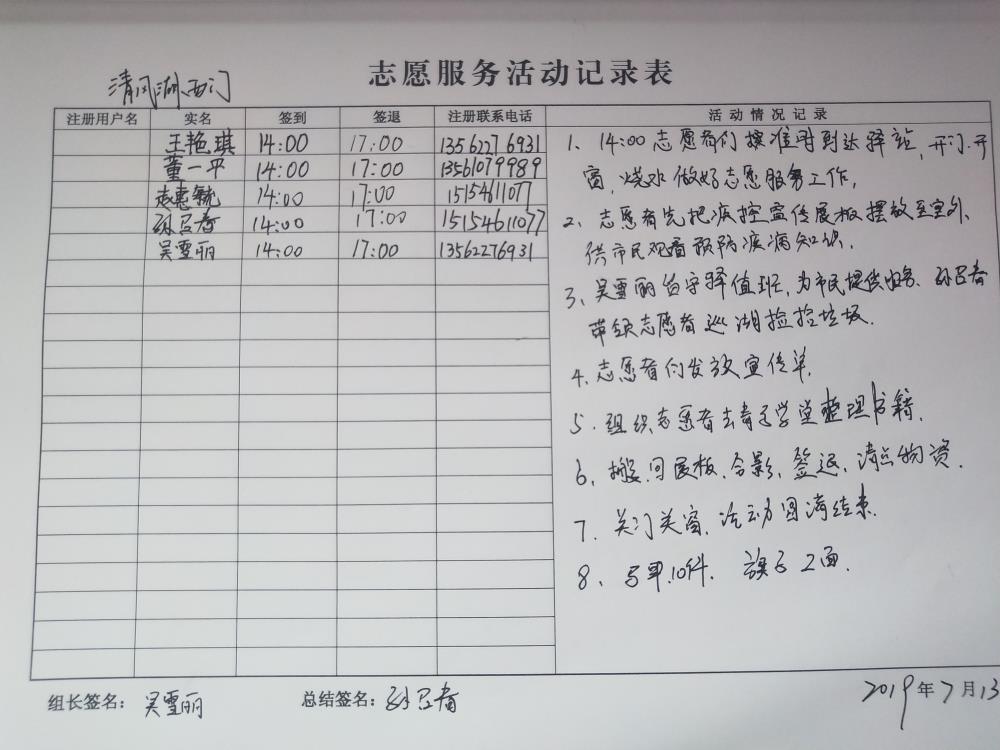 志愿服务活动记录表
清风湖西门
注册用户名 实名 签到 签退 注册联系电话 活动情况记录
王艳琪 14:00 17:00 13562276931
董一平 14:00 17:00 13561079989
志惠毓 14:00 17:00 15154611077
孙召香 14:00 17:00 15154611077
吴雪丽 14:00 17:00 13562276931
1、14:00志愿者们按准时到达驿站,开门.开
窗,烧水做好志愿服务工作,
2、志愿者先把疾控宣传展板摆放至室外、
供市民观看预防疾病知识.
3、吴雪丽留守驿值班,为市民提供服务、孙召香
带领志愿者巡湖捡拾垃圾.
4.志愿者们发放宣传单.
5.组织志愿者去青子学堂整理书籍.
6、搬回展板、合影、签退、清点物资.
7、关门关窗、活动圆满结束.
8、马甲10件. 旗子2面.
组长签名:吴雪丽 总结签名:孙召香 2019年7月13